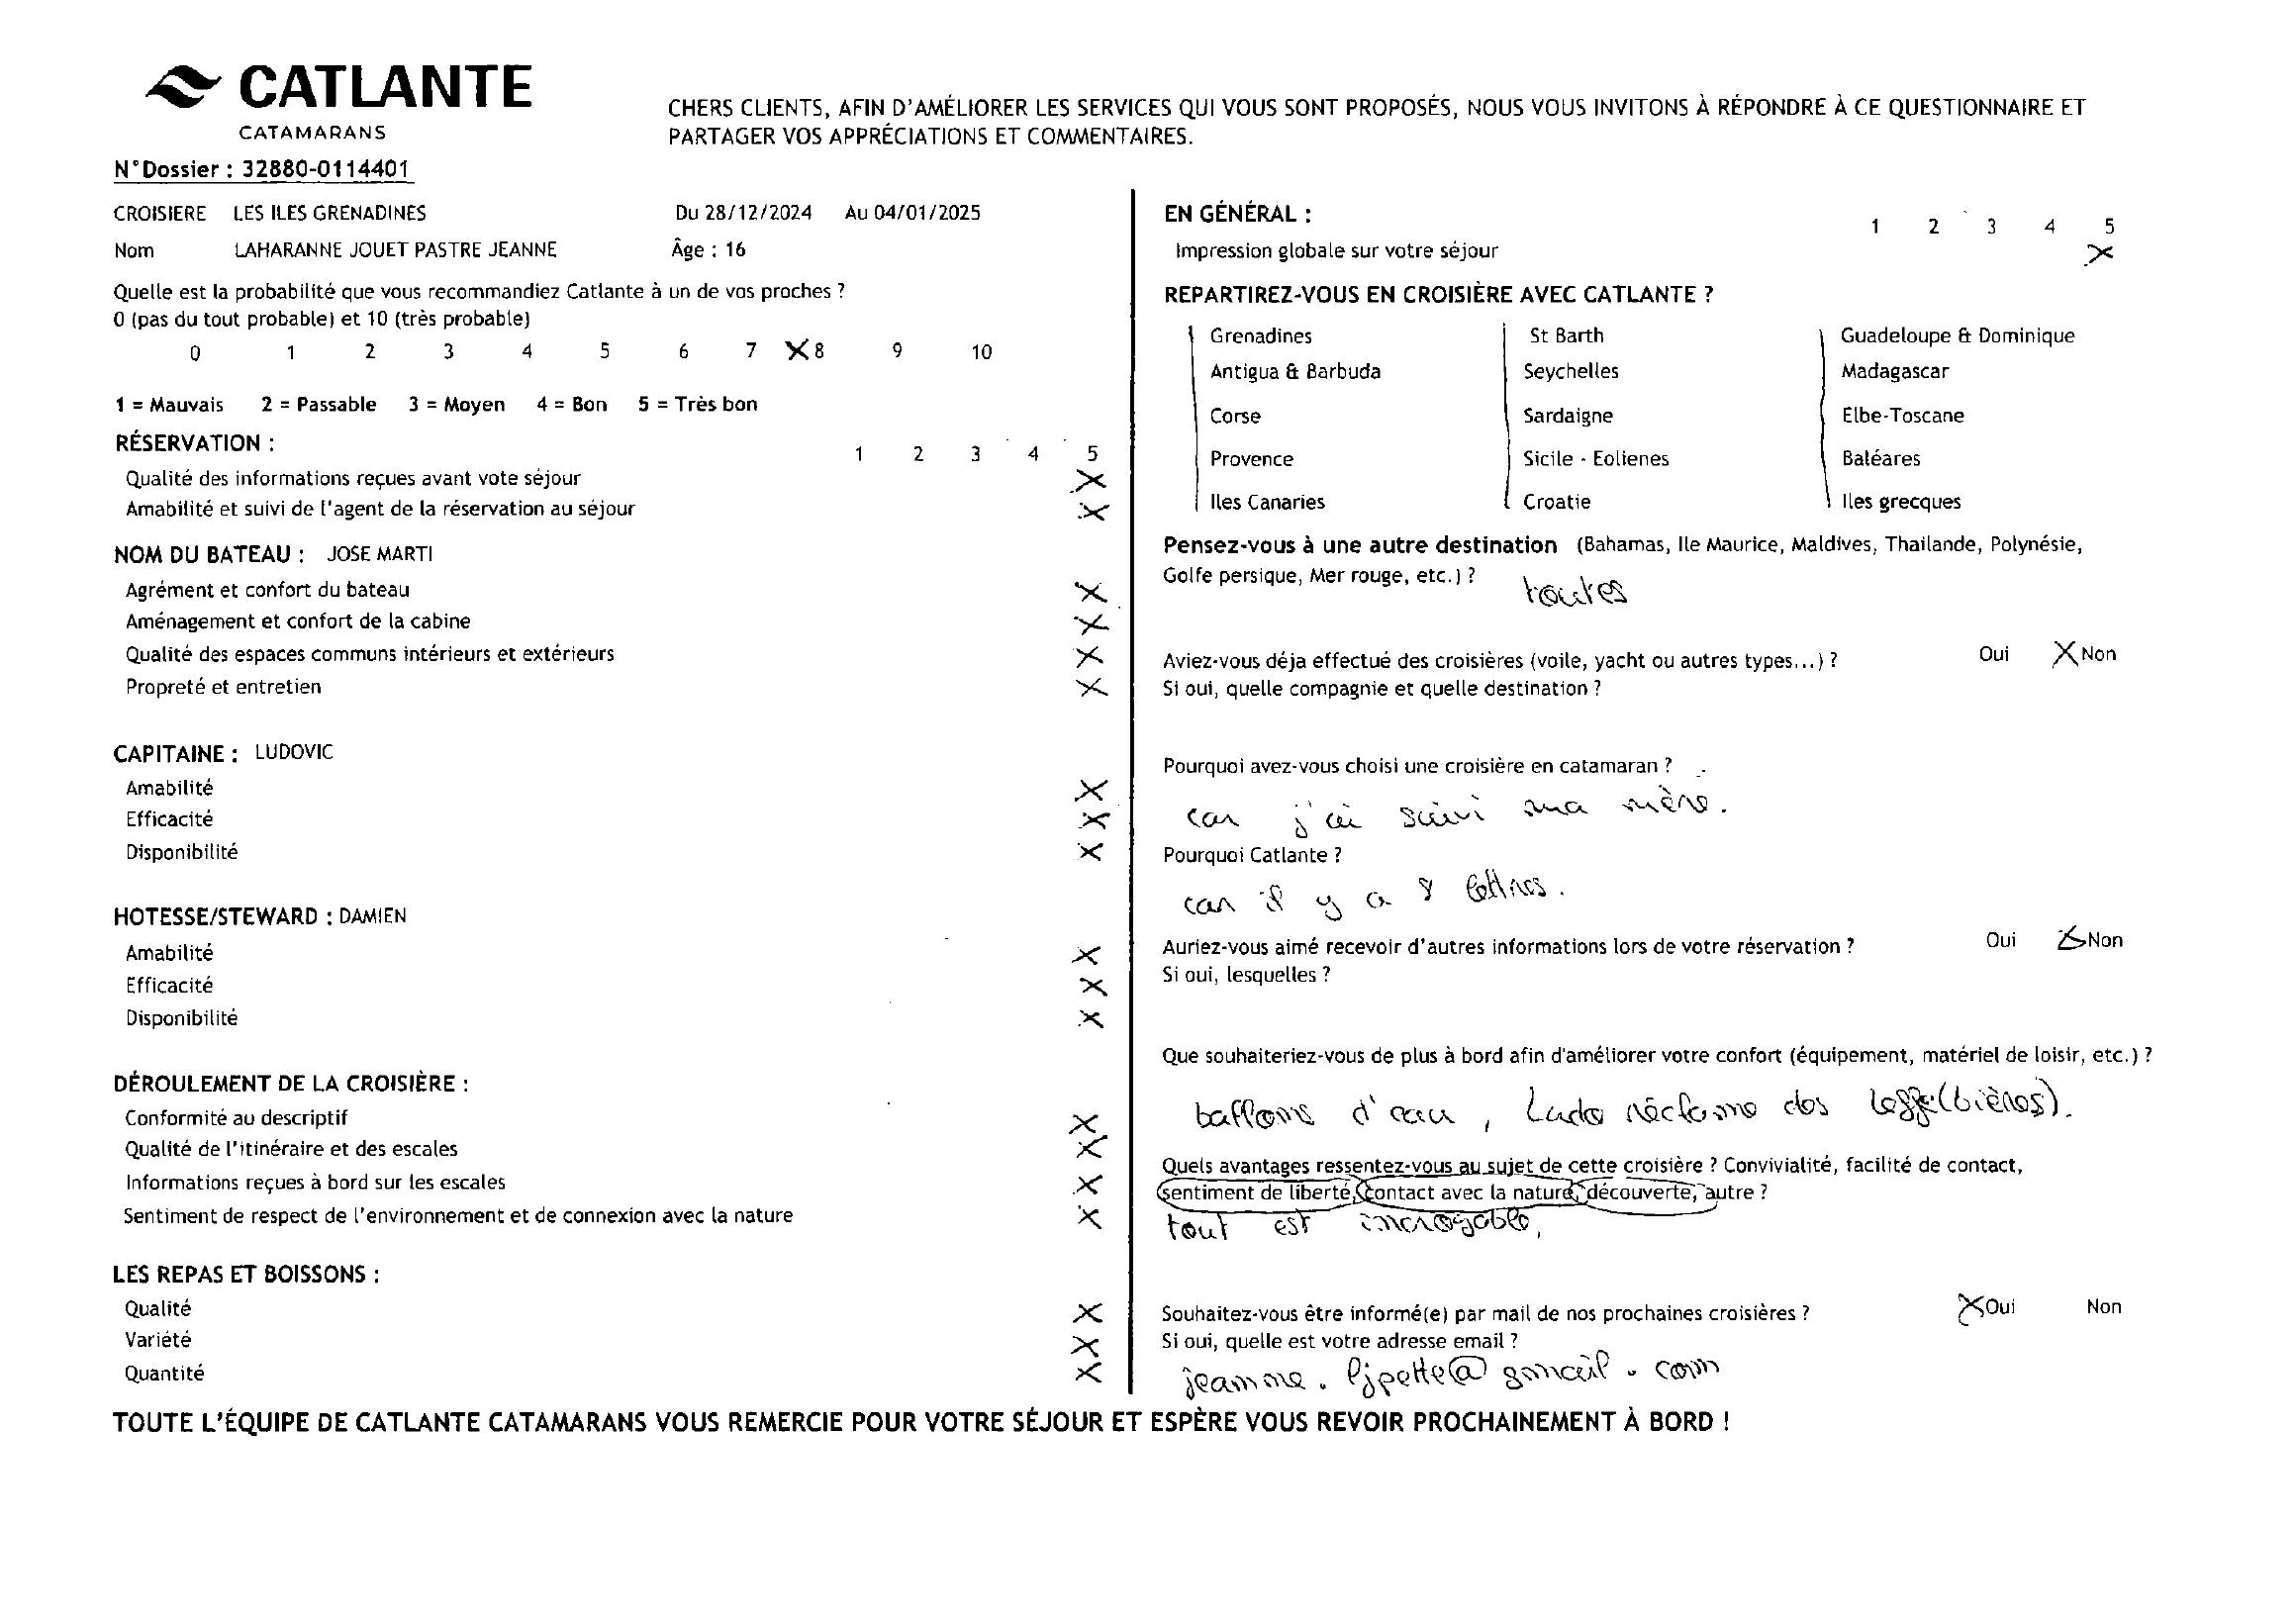 CATLANTE
CATAMARANS
CHERS CLIENTS, AFIN D'AMÉLIORER LES SERVICES QUI VOUS SONT PROPOSÉS, NOUS VOUS INVITONS À RÉPONDRE À CE QUESTIONNAIRE ET
PARTAGER VOS APPRÉCIATIONS ET COMMENTAIRES.
N°Dossier : 32880-0114401
CROISIERE LES ILES GRENADINES Du 28/12/2024 Au 04/01/2025
Nom LAHARANNE JOUET PASTRE JEANNE Âge : 16
Quelle est la probabilité que vous recommandiez Catlante à un de vos proches ?
0 (pas du tout probable) et 10 (très probable)
0 1 2 3 4 5 6 7 X 8 9 10
1 = Mauvais 2 = Passable 3 = Moyen 4 = Bon 5 = Très bon
RÉSERVATION :
1 2 3 4 5
Qualité des informations reçues avant vote séjour X
Amabilité et suivi de l'agent de la réservation au séjour X
NOM DU BATEAU : JOSE MARTI
Agrément et confort du bateau X
Aménagement et confort de la cabine X
Qualité des espaces communs intérieurs et extérieurs X
Propreté et entretien X
CAPITAINE : LUDOVIC
Amabilité X
Efficacité X
Disponibilité X
HOTESSE/STEWARD : DAMIEN
Amabilité X
Efficacité X
Disponibilité X
DÉROULEMENT DE LA CROISIÈRE :
Conformité au descriptif X
Qualité de l'itinéraire et des escales X
Informations reçues à bord sur les escales X
Sentiment de respect de l'environnement et de connexion avec la nature X
LES REPAS ET BOISSONS :
Qualité X
Variété X
Quantité X
EN GÉNÉRAL :
1 2 3 4 5
Impression globale sur votre séjour X
REPARTIREZ-VOUS EN CROISIÈRE AVEC CATLANTE ?
Grenadines St Barth Guadeloupe & Dominique
Antigua & Barbuda Seychelles Madagascar
Corse Sardaigne Elbe-Toscane
Provence Sicile - Eolienes Baléares
Iles Canaries Croatie Iles grecques
Pensez-vous à une autre destination (Bahamas, Ile Maurice, Maldives, Thailande, Polynésie,
Golfe persique, Mer rouge, etc.) ? toutes
Aviez-vous déja effectué des croisières (voile, yacht ou autres types...) ? Oui X Non
Si oui, quelle compagnie et quelle destination ?
Pourquoi avez-vous choisi une croisière en catamaran ?
car j'ai suivi ma mère.
Pourquoi Catlante ?
car il y a 8 lettres.
Auriez-vous aimé recevoir d'autres informations lors de votre réservation ? Oui X Non
Si oui, lesquelles ?
Que souhaiteriez-vous de plus à bord afin d'améliorer votre confort (équipement, matériel de loisir, etc.) ?
ballons d'eau, Ludo réclame des (bières).
Quels avantages ressentez-vous au sujet de cette croisière ? Convivialité, facilité de contact,
sentiment de liberté, contact avec la nature, découverte, autre ?
tout est incroyable,
Souhaitez-vous être informé(e) par mail de nos prochaines croisières ? X Oui Non
Si oui, quelle est votre adresse email ?
jeanne.ljpette@gmail.com
TOUTE L'ÉQUIPE DE CATLANTE CATAMARANS VOUS REMERCIE POUR VOTRE SÉJOUR ET ESPÈRE VOUS REVOIR PROCHAINEMENT À BORD !